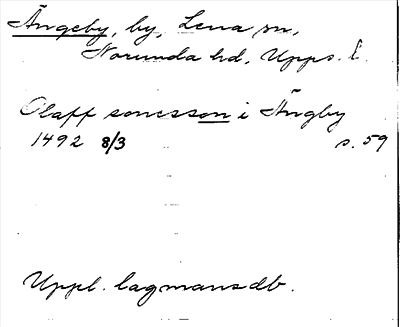 Ängeby, by, Lena sn,
Norunda hd, Upps. l.
Olaff sonesson i Ängby
1492 8/3 s. 59
Uppl. lagmansdb.